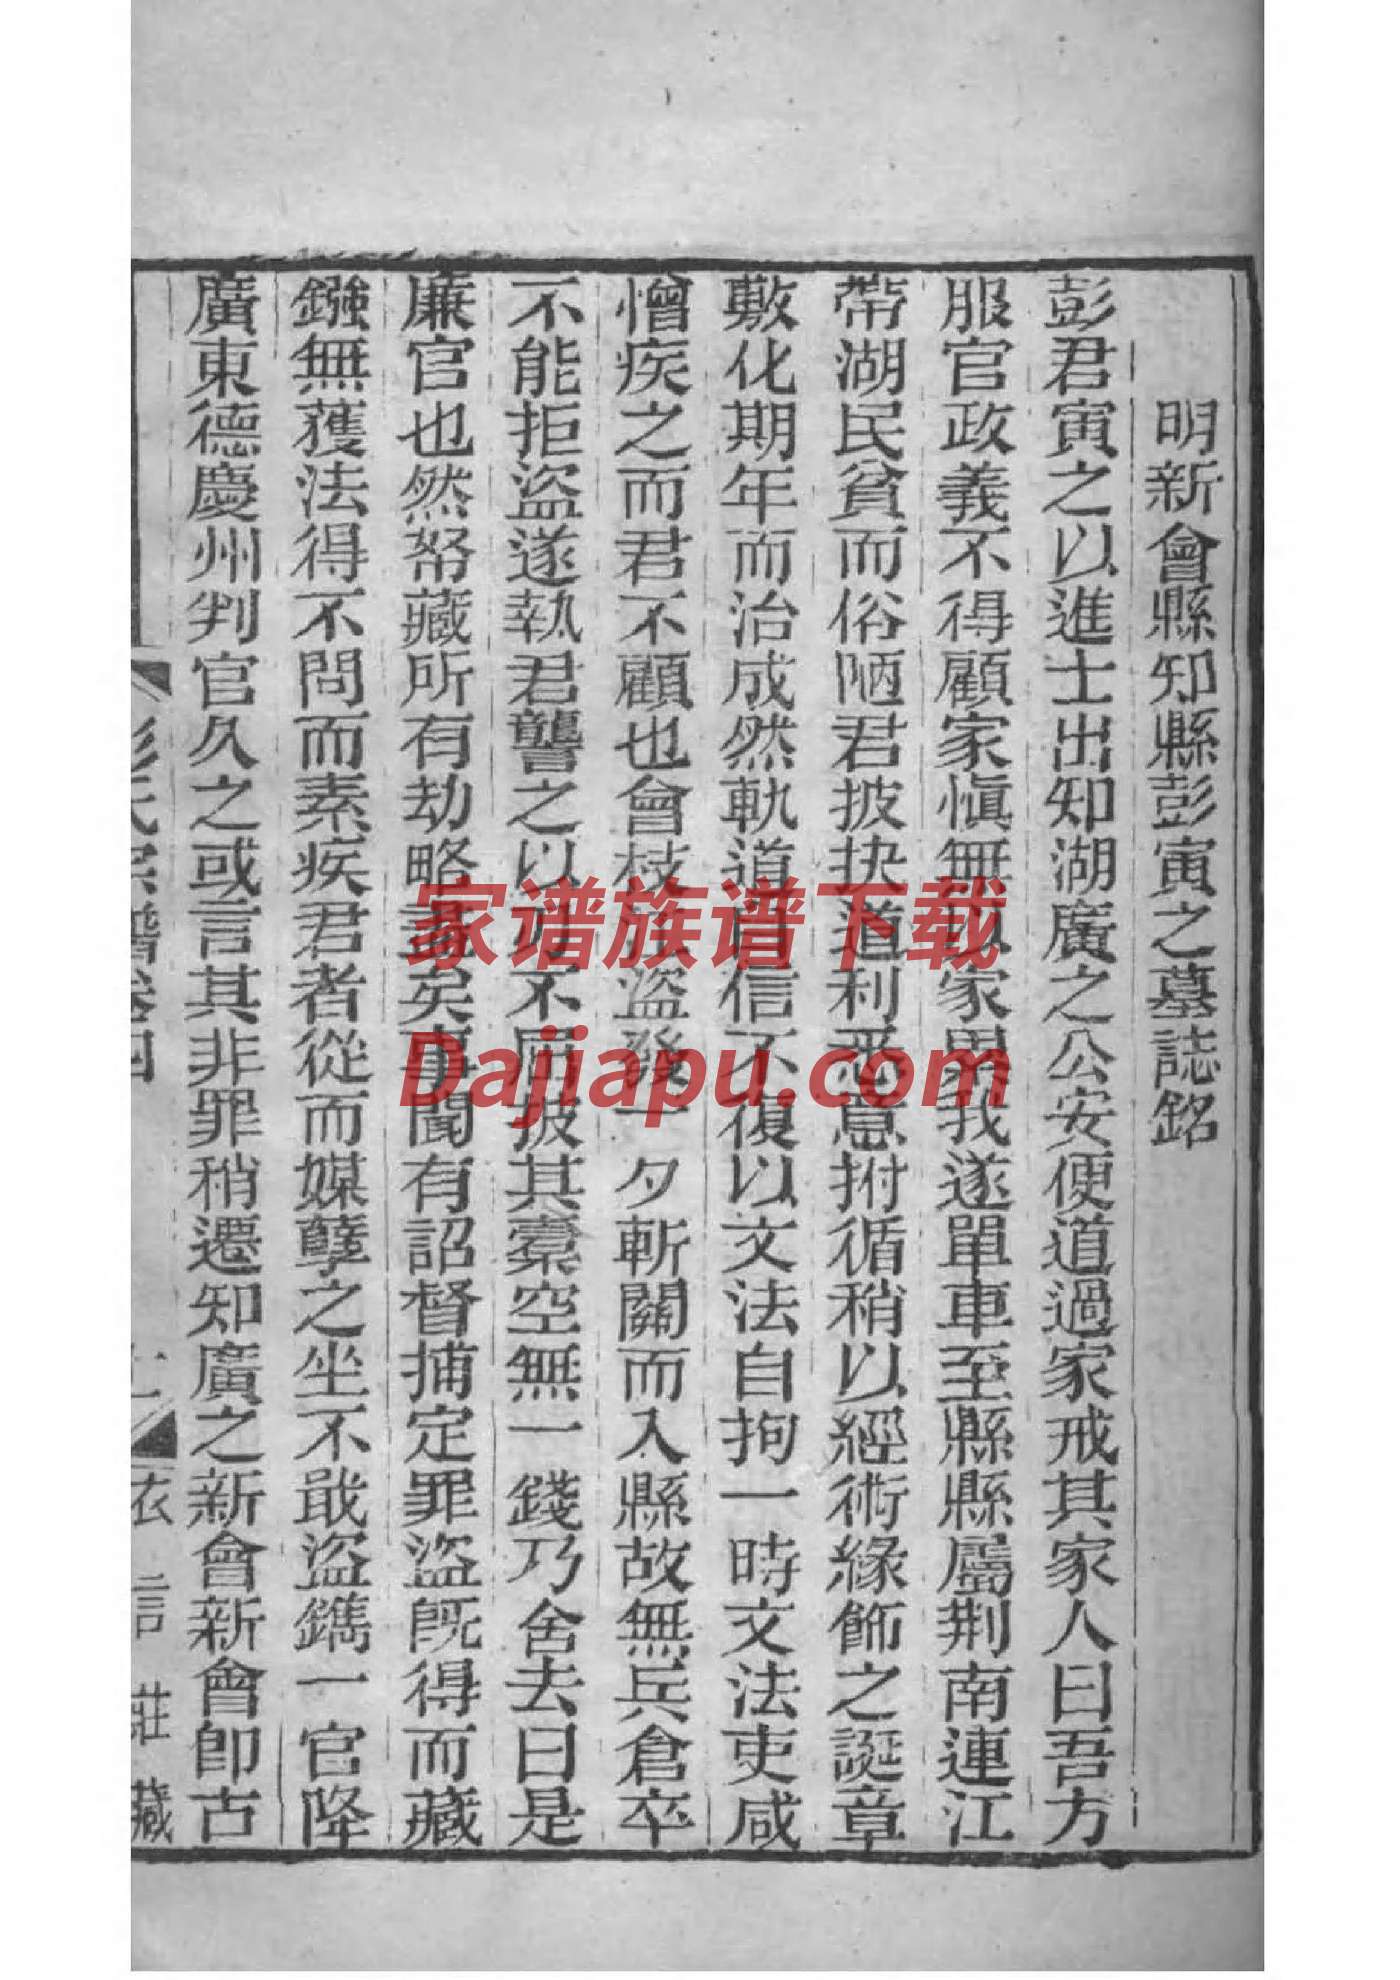 明新會縣知縣彭寅之墓誌銘
彭君寅之以進士出知湖廣之公安便道過家戒其家人曰吾方
服官政義不得顧家愼無以家累我遂單車至縣縣屬荆南連江
帶湖民貧而俗陋君披抉道利悉意拊循稍以經術緣飾之誕章
敷化期年而治成然軌道自信不復以文法自拘一時文法吏咸
憎疾之而君不顧也會枝江盜發一夕斬關而入縣故無兵倉卒
不能拒盜遂執君讋之以刃不屈披其橐空無一錢乃舍去曰是
廉官也然帑藏所有劫略家矣事聞有詔督捕定罪盜旣得而藏
鏹無獲法得不問而素疾君者從而媒孽之坐不戢盜鐫一官降
廣東德慶州判官久之或言其非罪稍遷知廣之新會新會卽古
彭氏宗譜卷四
衣言莊藏
家谱族谱下载
Dajiapu.com